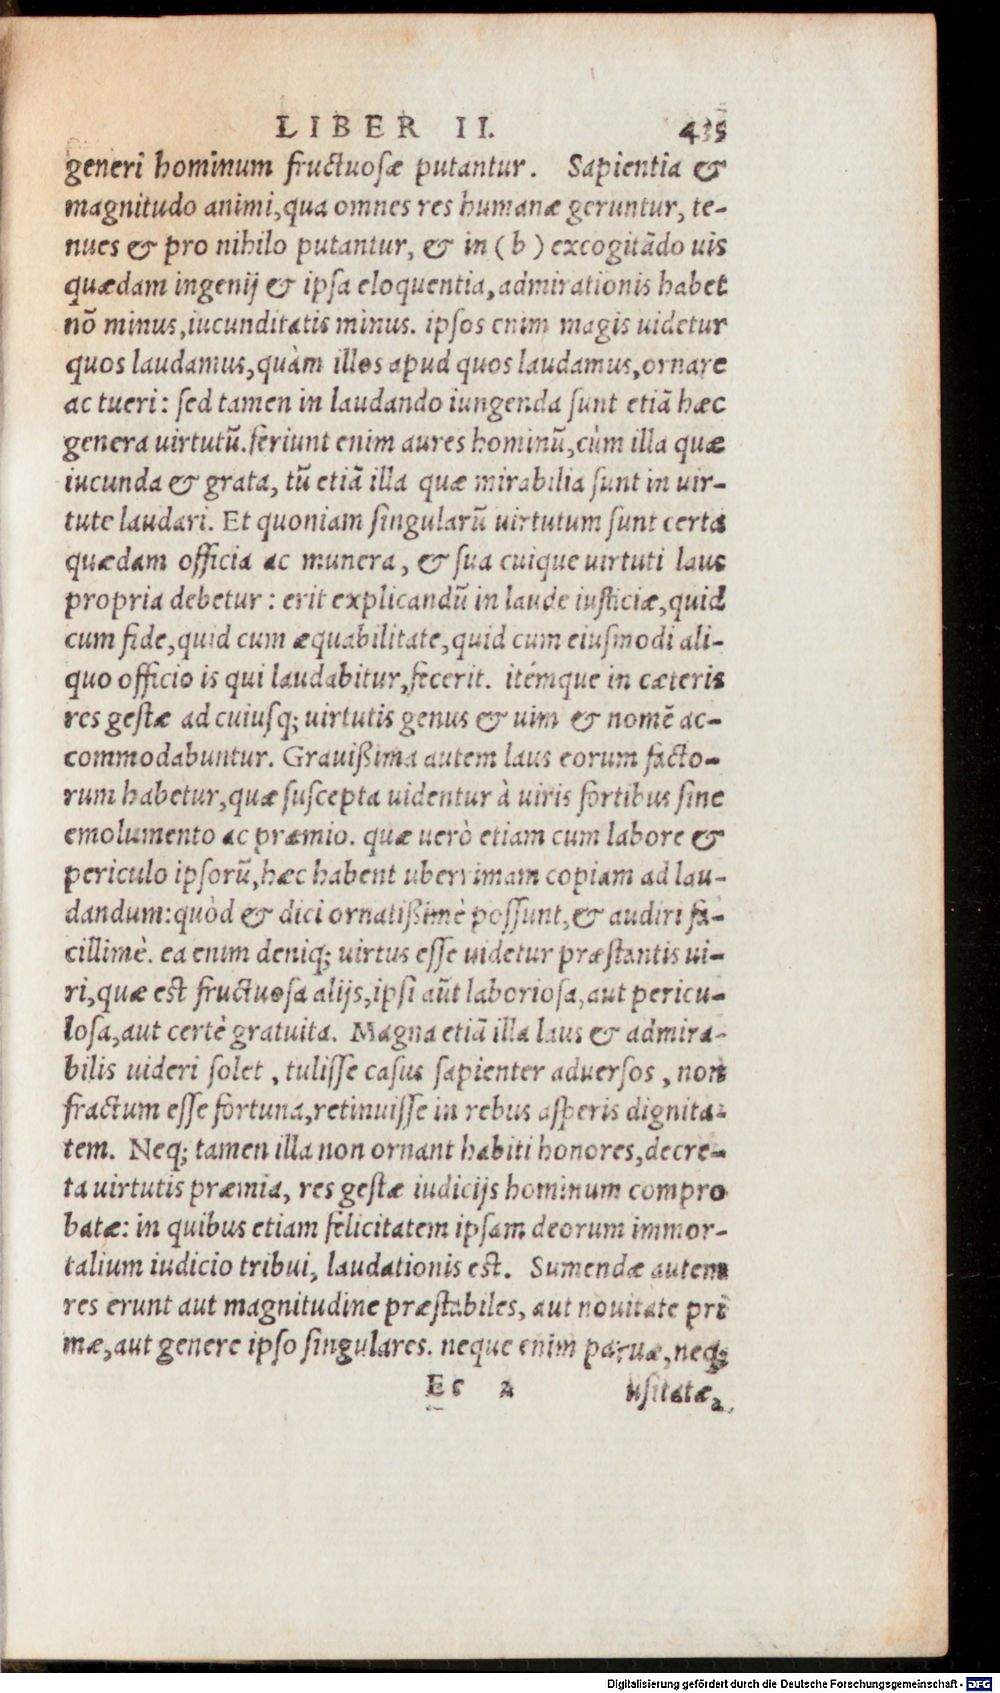 LIBER II. 435
generi hominum fructuoſæ putantur. Sapientia &
magnitudo animi,qua omnes res humanæ geruntur, te-
nues & pro nihilo putantur, & in ( b ) excogitãdo uis
quædam ingenij & ipſa eloquentia, admirationis habet
nõ minus,iucunditatis minus. ipſos enim magis uidetur
quos laudamus,quàm illos apud quos laudamus,ornare
ac tueri: ſed tamen in laudando iungenda ſunt etiã hæc
genera uirtutũ.feriunt enim aures hominũ,cùm illa quæ
iucunda & grata, tũ etiã illa quæ mirabilia ſunt in uir-
tute laudari. Et quoniam ſingularũ uirtutum ſunt certa
quædam officia ac munera, & ſua cuique uirtuti laus
propria debetur: erit explicandũ in laude iuſticiæ,quid
cum fide,quid cum æquabilitate,quid cum eiuſmodi ali-
quo officio is qui laudabitur,fecerit. itémque in cæteris
res geſtæ ad cuiusq; uirtutis genus & uim & nomẽ ac-
commodabuntur. Grauißima autem laus eorum facto-
rum habetur,quæ ſuſcepta uidentur à uiris fortibus ſine
emolumento ac præmio. quæ uerò etiam cum labore &
periculo ipſorũ,hæc habent uberrimam copiam ad lau-
dandum:quòd & dici ornatißimè poſſunt,& audiri fa-
cillimè. ea enim deniq; uirtus eſſe uidetur præſtantis ui-
ri,quæ eſt fructuoſa alijs,ipſi aũt laborioſa,aut pericu-
loſa,aut certè gratuita. Magna etiã illa laus & admira-
bilis uideri ſolet, tuliſſe caſus ſapienter aduerſos, non
fractum eſſe fortuna,retinuiſſe in rebus aſperis dignita-
tem. Neq; tamen illa non ornant habiti honores,decre-
ta uirtutis præmia, res geſtæ iudicijs hominum compro
batæ: in quibus etiam felicitatem ipſam deorum immor-
talium iudicio tribui, laudationis eſt. Sumendæ autem
res erunt aut magnitudine præſtabiles, aut nouitate pri
mæ,aut genere ipſo ſingulares. neque enim paruæ,neq;
Ee 2 uſitatæ,
Digitalisierung gefördert durch die Deutsche Forschungsgemeinschaft - DFG